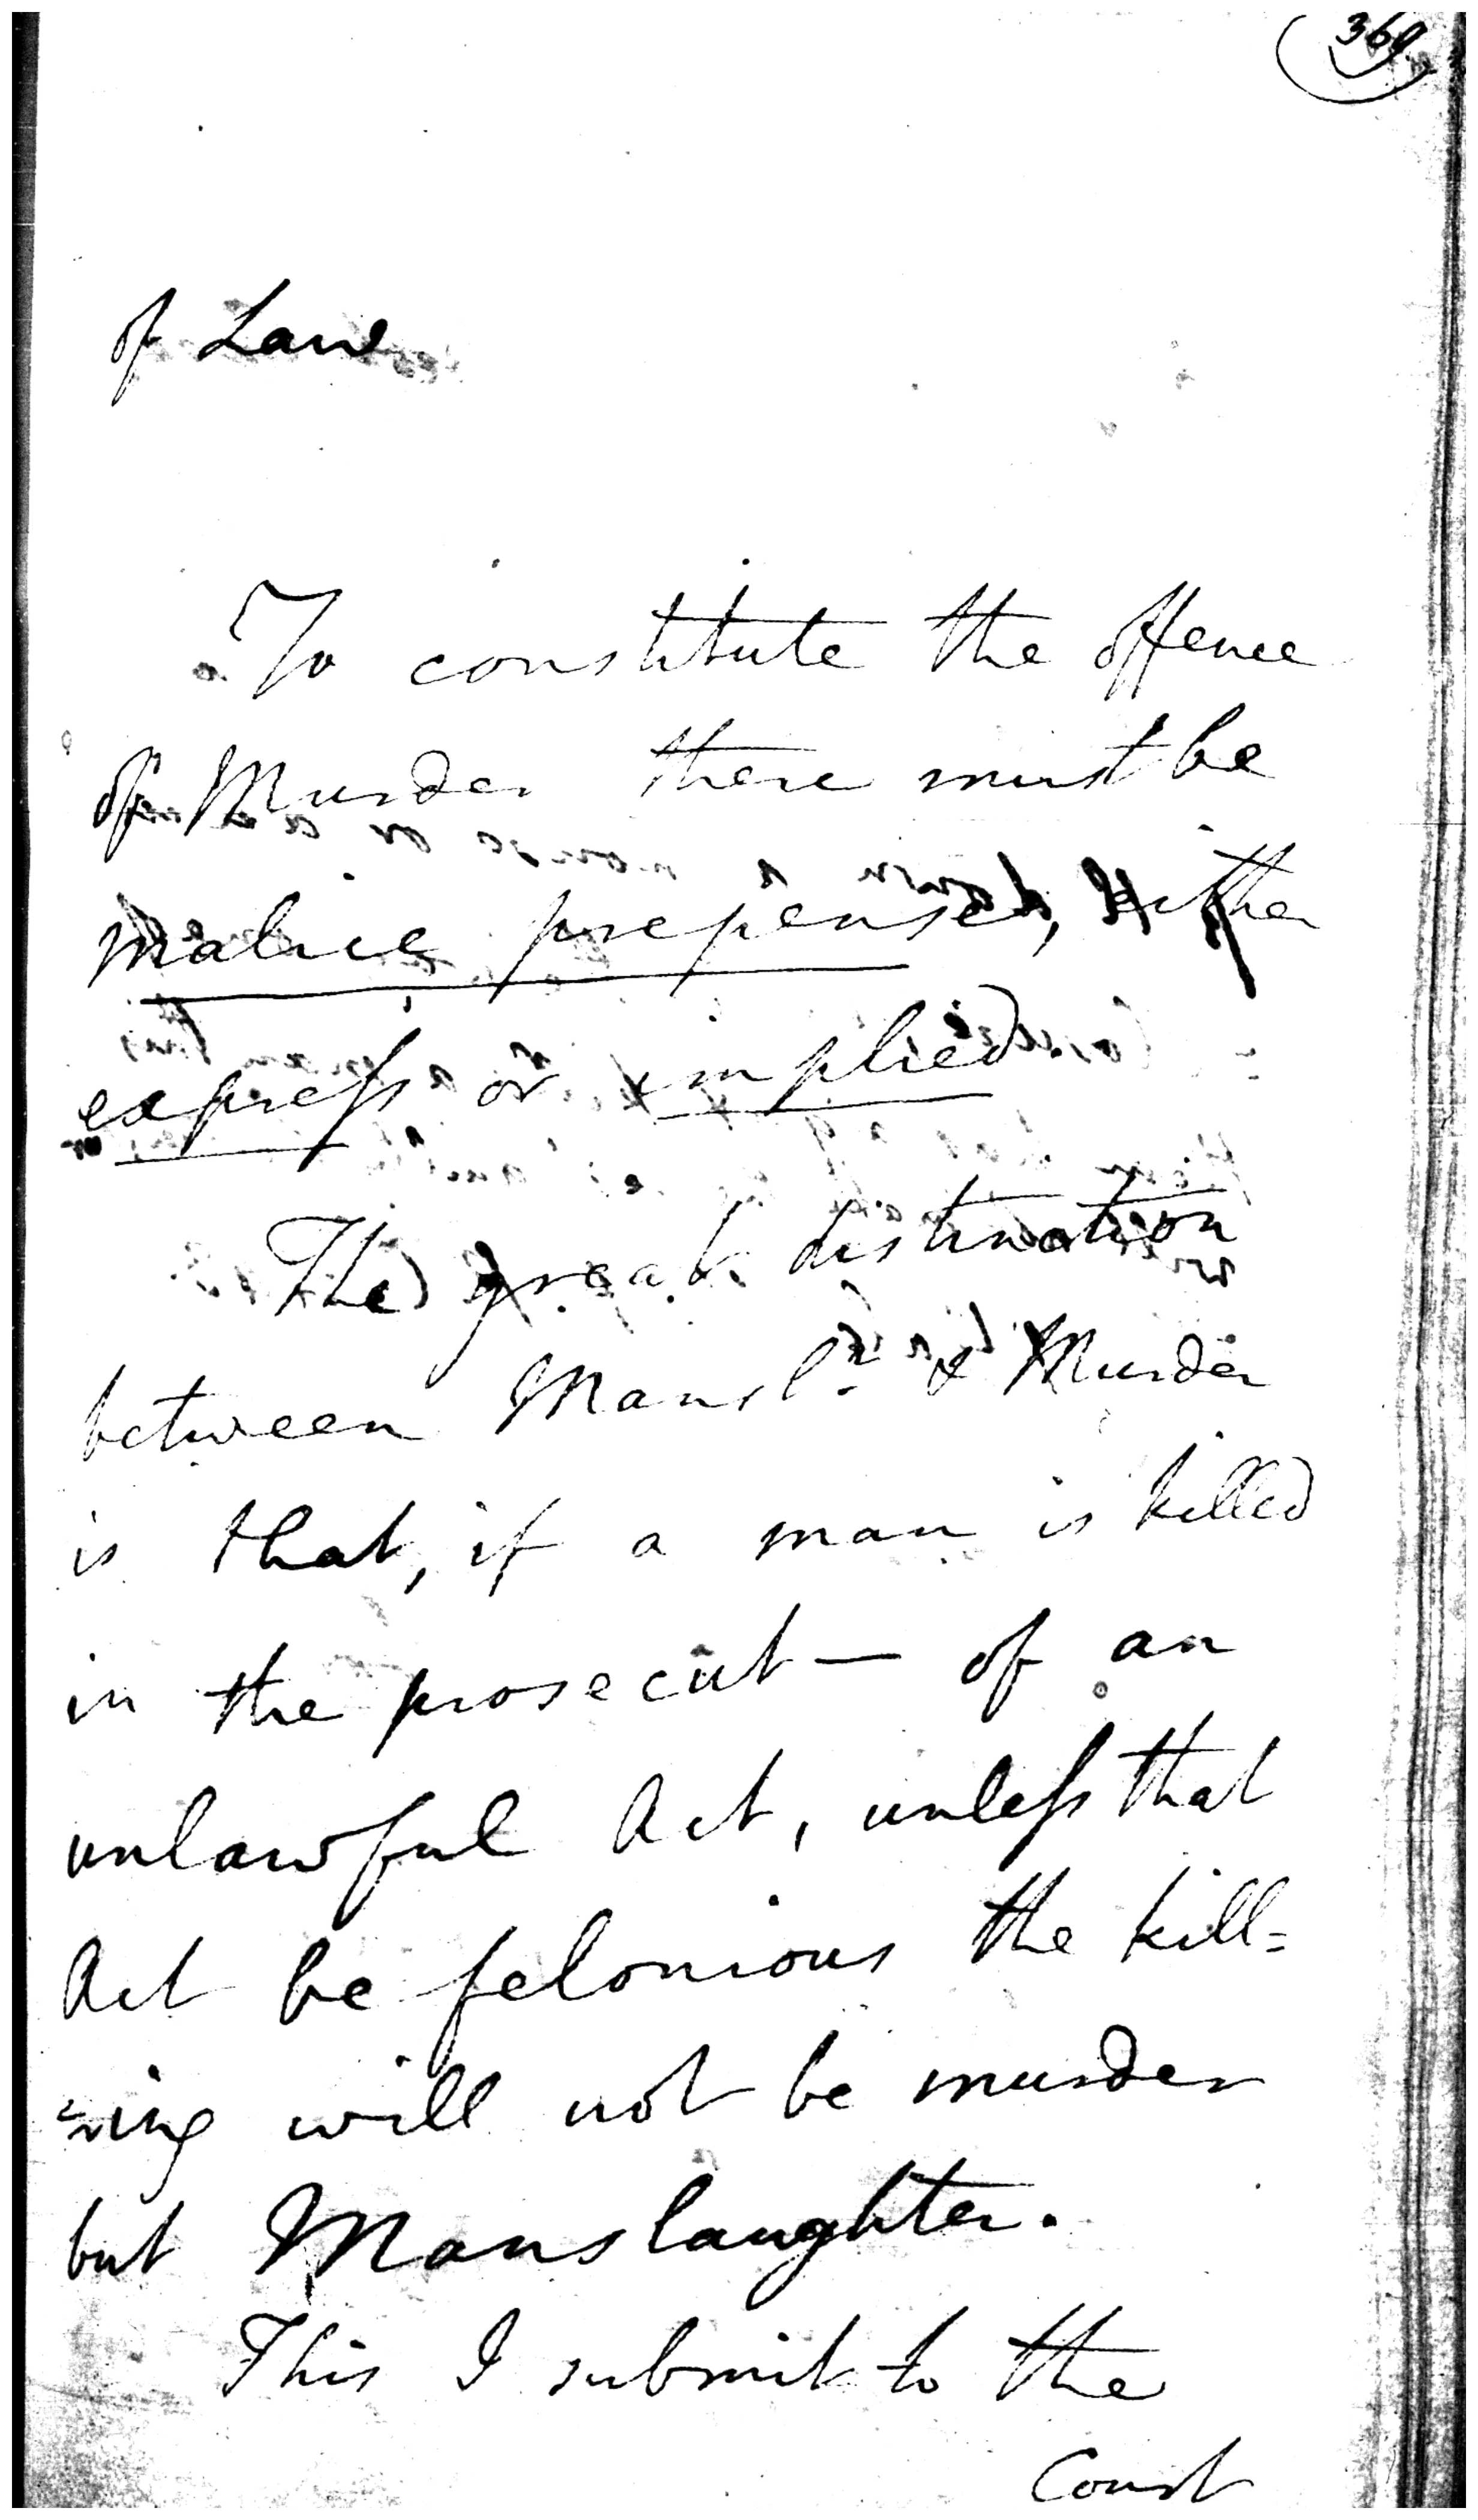 of Law
To constitute the offence
of Murder there must be
malice prepense, either
express or implied.
The great distinction
between Mansl.r & Murder
is that, if a man is killed
in the prosecut— of an
unlawful Act, unless that
Act be felonious the kill=
=ing will not be murder
but Manslaughter.
This I submit to the
Court